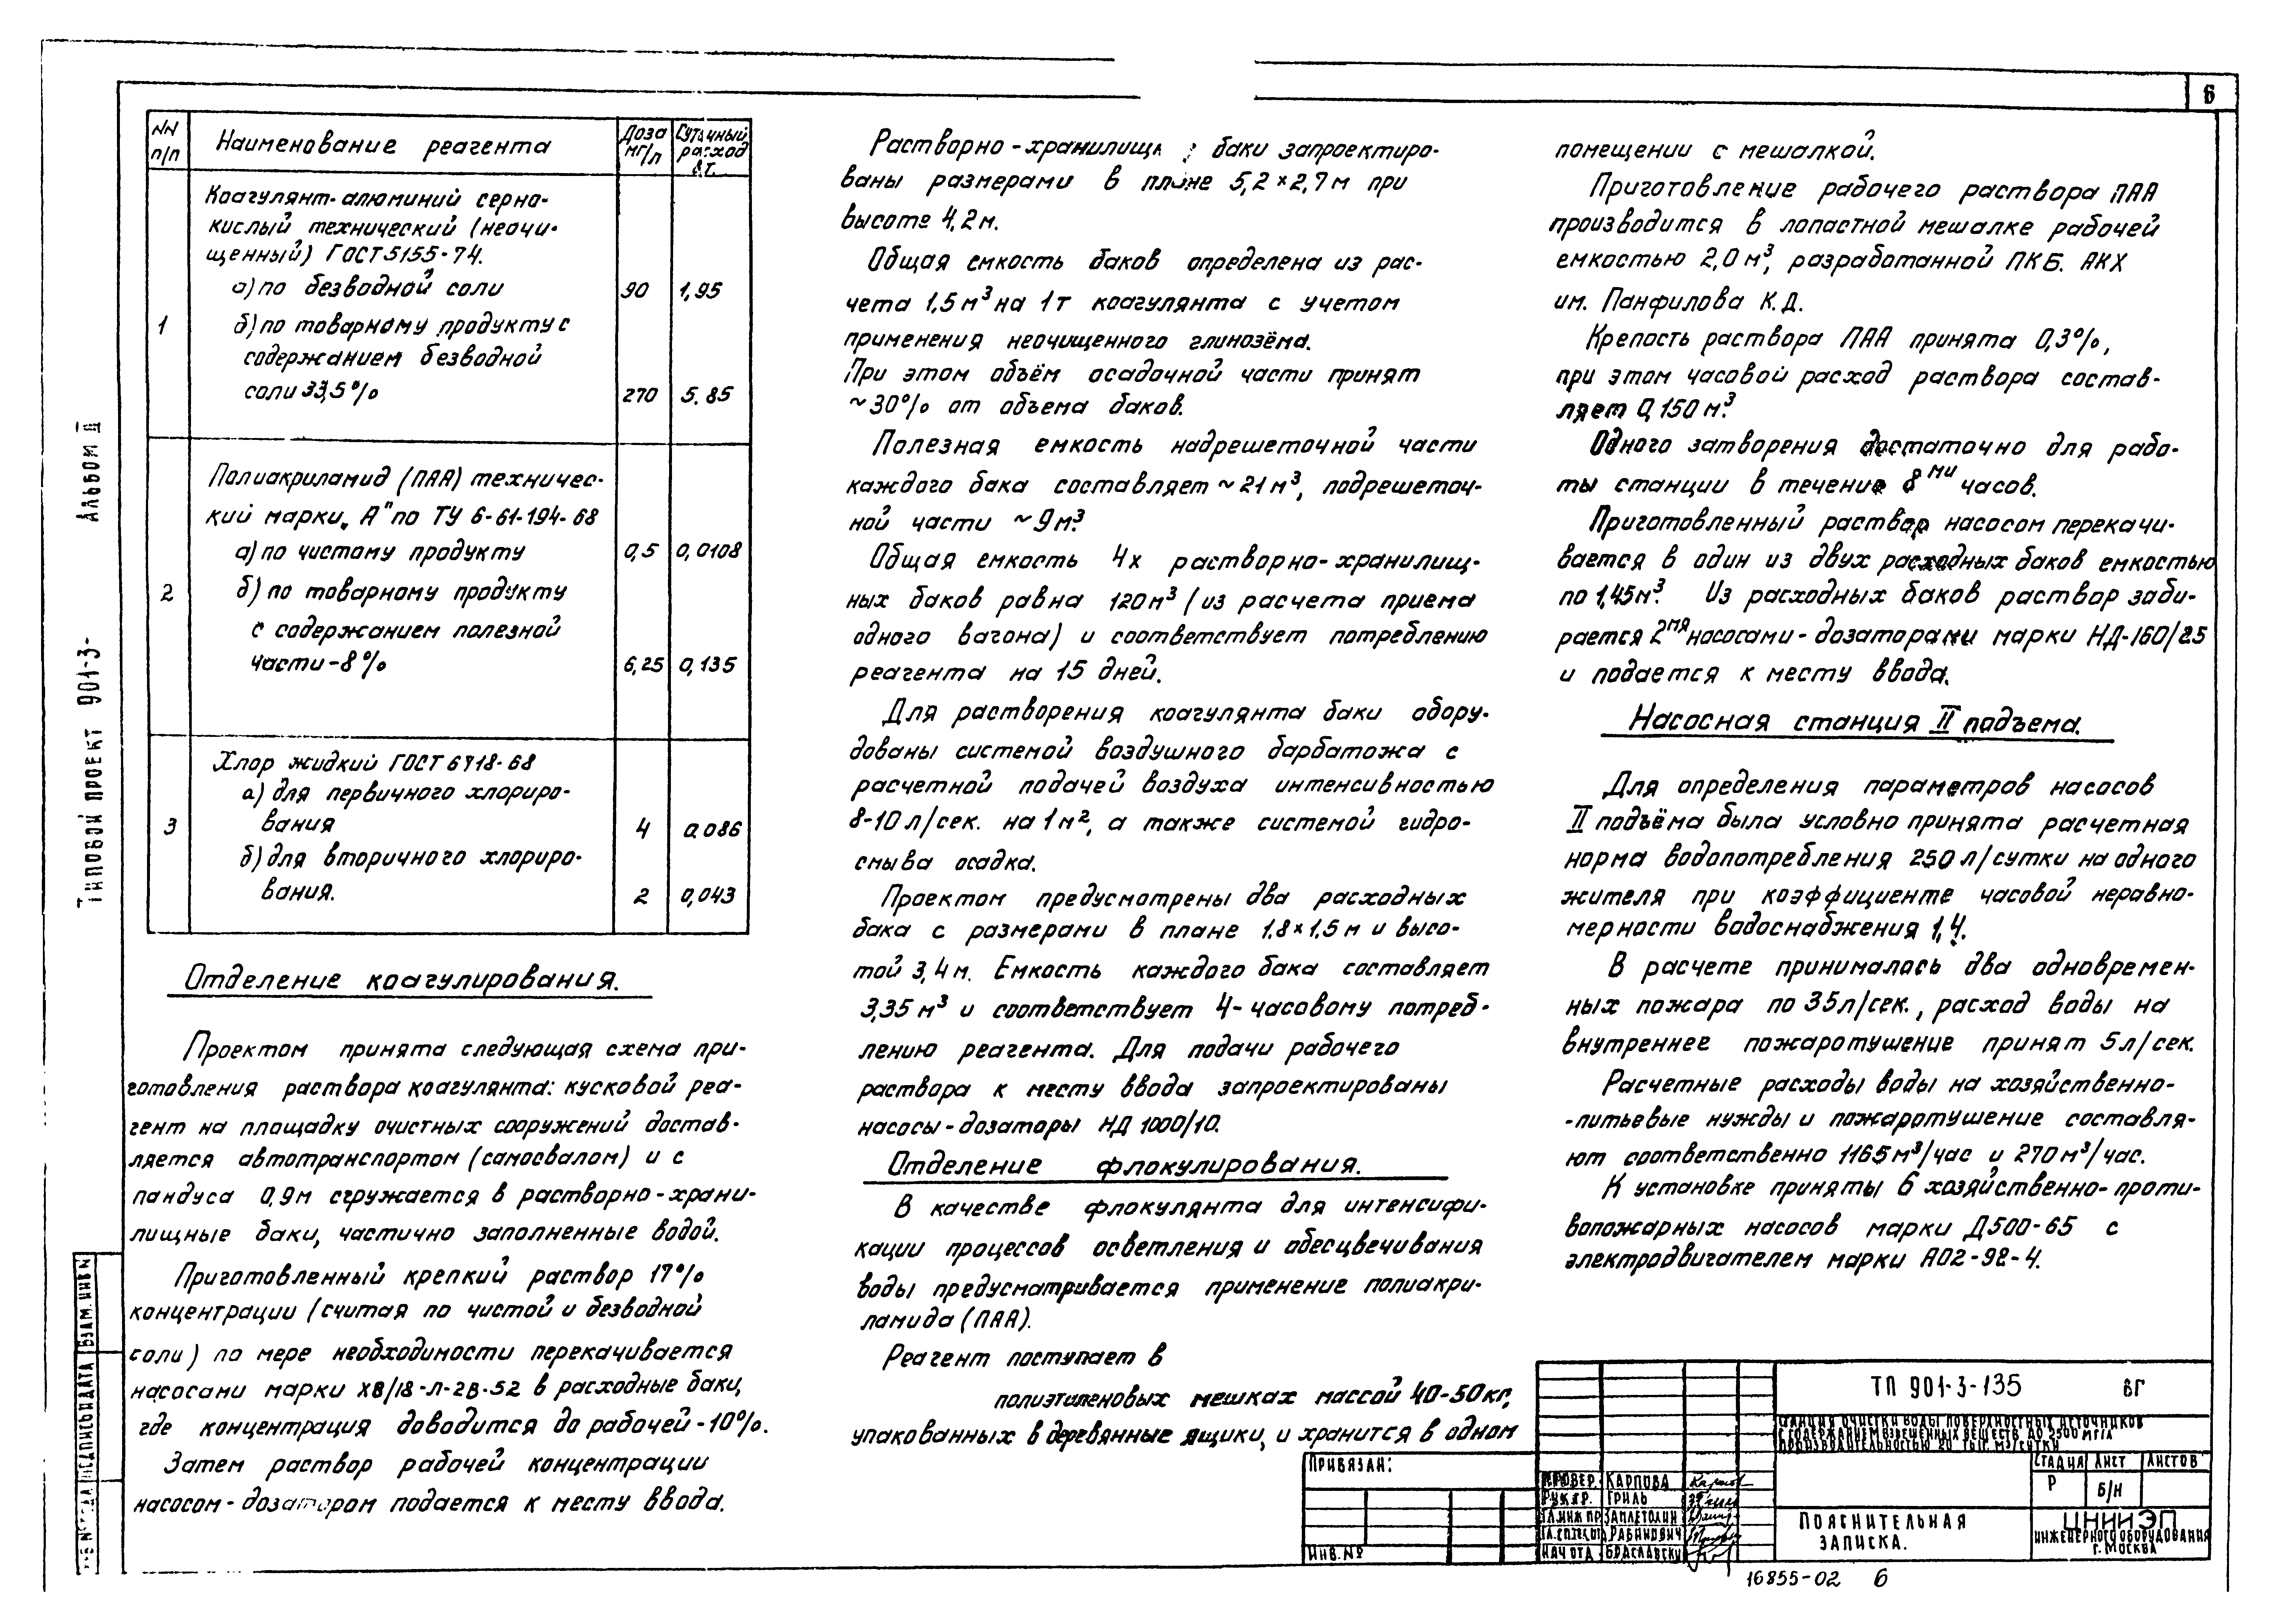 6
NN п/п
Наименование реагента
Доза мг/л
Суточный расход в т.
1
Коагулянт-алюминий серно-
кислый технический (неочи-
щенный) ГОСТ 5155-74.
а) по безводной соли 90 1,95
б) по товарному продукту с
содержанием безводной
соли 33,5% 270 5.85
2
Полиакриламид (ПАА) техничес-
кий марки „А" по ТУ 6-61-194-68
а) по чистому продукту 0,5 0,0108
б) по товарному продукту
с содержанием полезной
части-8% 6,25 0,135
3
Хлор жидкий ГОСТ 6718-68
а) для первичного хлориро-
вания 4 0.086
б) для вторичного хлориро-
вания. 2 0,043
Отделение коагулирования.
Проектом принята следующая схема при-
готовления раствора коагулянта: кусковой реа-
гент на площадку очистных сооружений достав-
ляется автотранспортом (самосвалом) и с
пандуса 0,9м сгружается в растворно-храни-
лищные баки, частично заполненные водой.
Приготовленный крепкий раствор 17%
концентрации (считая по чистой и безводной
соли) по мере необходимости перекачивается
насосами марки ХВ/18-Л-2В-52 в расходные баки,
где концентрация доводится до рабочей-10%.
Затем раствор рабочей концентрации
насосом-дозатором подается к месту ввода.
Растворно-хранилищные баки запроектиро-
ваны размерами в плане 5,2×2,7м при
высоте 4,2м.
Общая емкость баков определена из рас-
чета 1,5м³ на 1т коагулянта с учетом
применения неочищенного глинозёма.
При этом объём осадочной части принят
~30% от объема баков.
Полезная емкость надрешеточной части
каждого бака составляет ~21м³, подрешеточ-
ной части ~9м³.
Общая емкость 4х растворно-хранилищ-
ных баков равна 120м³ (из расчета приема
одного вагона) и соответствует потреблению
реагента на 15 дней.
Для растворения коагулянта баки обору-
дованы системой воздушного барбатожа с
расчетной подачей воздуха интенсивностью
8-10л/сек. на 1м², а также системой гидро-
смыва осадка.
Проектом предусмотрены два расходных
бака с размерами в плане 1.8×1,5м и высо-
той 3,4м. Емкость каждого бака составляет
3,35м³ и соответствует 4-часовому потреб-
лению реагента. Для подачи рабочего
раствора к месту ввода запроектированы
насосы-дозаторы НД 1000/10.
Отделение флокулирования.
В качестве флокулянта для интенсифи-
кации процессов осветления и обесцвечивания
воды предусматривается применение полиакри-
ламида (ПАА).
Реагент поступает в
полиэтиленовых мешках массой 40-50кг,
упакованных в деревянные ящики, и хранится в одном
помещении с мешалкой.
Приготовление рабочего раствора ПАА
производится в лопастной мешалке рабочей
емкостью 2,0м³, разработанной ПКБ. АКХ
им. Панфилова К.Д.
Крепость раствора ПАА принята 0,3%,
при этом часовой расход раствора состав-
ляет 0,150м³.
Одного затворения достаточно для рабо-
ты станции в течение 8ми часов.
Приготовленный раствор насосом перекачи-
вается в один из двух расходных баков емкостью
по 1,45м³. Из расходных баков раствор заби-
рается 2мя насосами-дозаторами марки НД-160/25
и подается к месту ввода.
Насосная станция II подъема.
Для определения параметров насосов
II подъёма была условно принята расчетная
норма водопотребления 250л/сутки на одного
жителя при коэффициенте часовой неравно-
мерности водоснабжения 1,4.
В расчете принималось два одновремен-
ных пожара по 35л/сек., расход воды на
внутреннее пожаротушение принят 5л/сек.
Расчетные расходы воды на хозяйственно-
-питьевые нужды и пожаротушение составля-
ют соответственно 1165м³/час и 270м³/час.
К установке приняты 6 хозяйственно-проти-
вопожарных насосов марки Д500-65 с
электродвигателем марки АО2-92-4.
Типовой проект 901-3- Альбом II
Подпись и дата Взам. инв N
Привязан:
Инв. №
Провер. Карпова
Рук.гр. Гриль
Гл.инж.пр Заплетохин
Гл.спец. Рабинович
Нач отд.
ТП 901-3-135 ВГ
Станция очистки воды поверхностных источников
с содержанием взвешенных веществ до 2500 мг/л
производительностью 20 тыс. м3/сутки
Стадия Лист Листов
Р б/н
Пояснительная
записка.
ЦНИИЭП
инженерного оборудования
г. Москва
16855-02 6